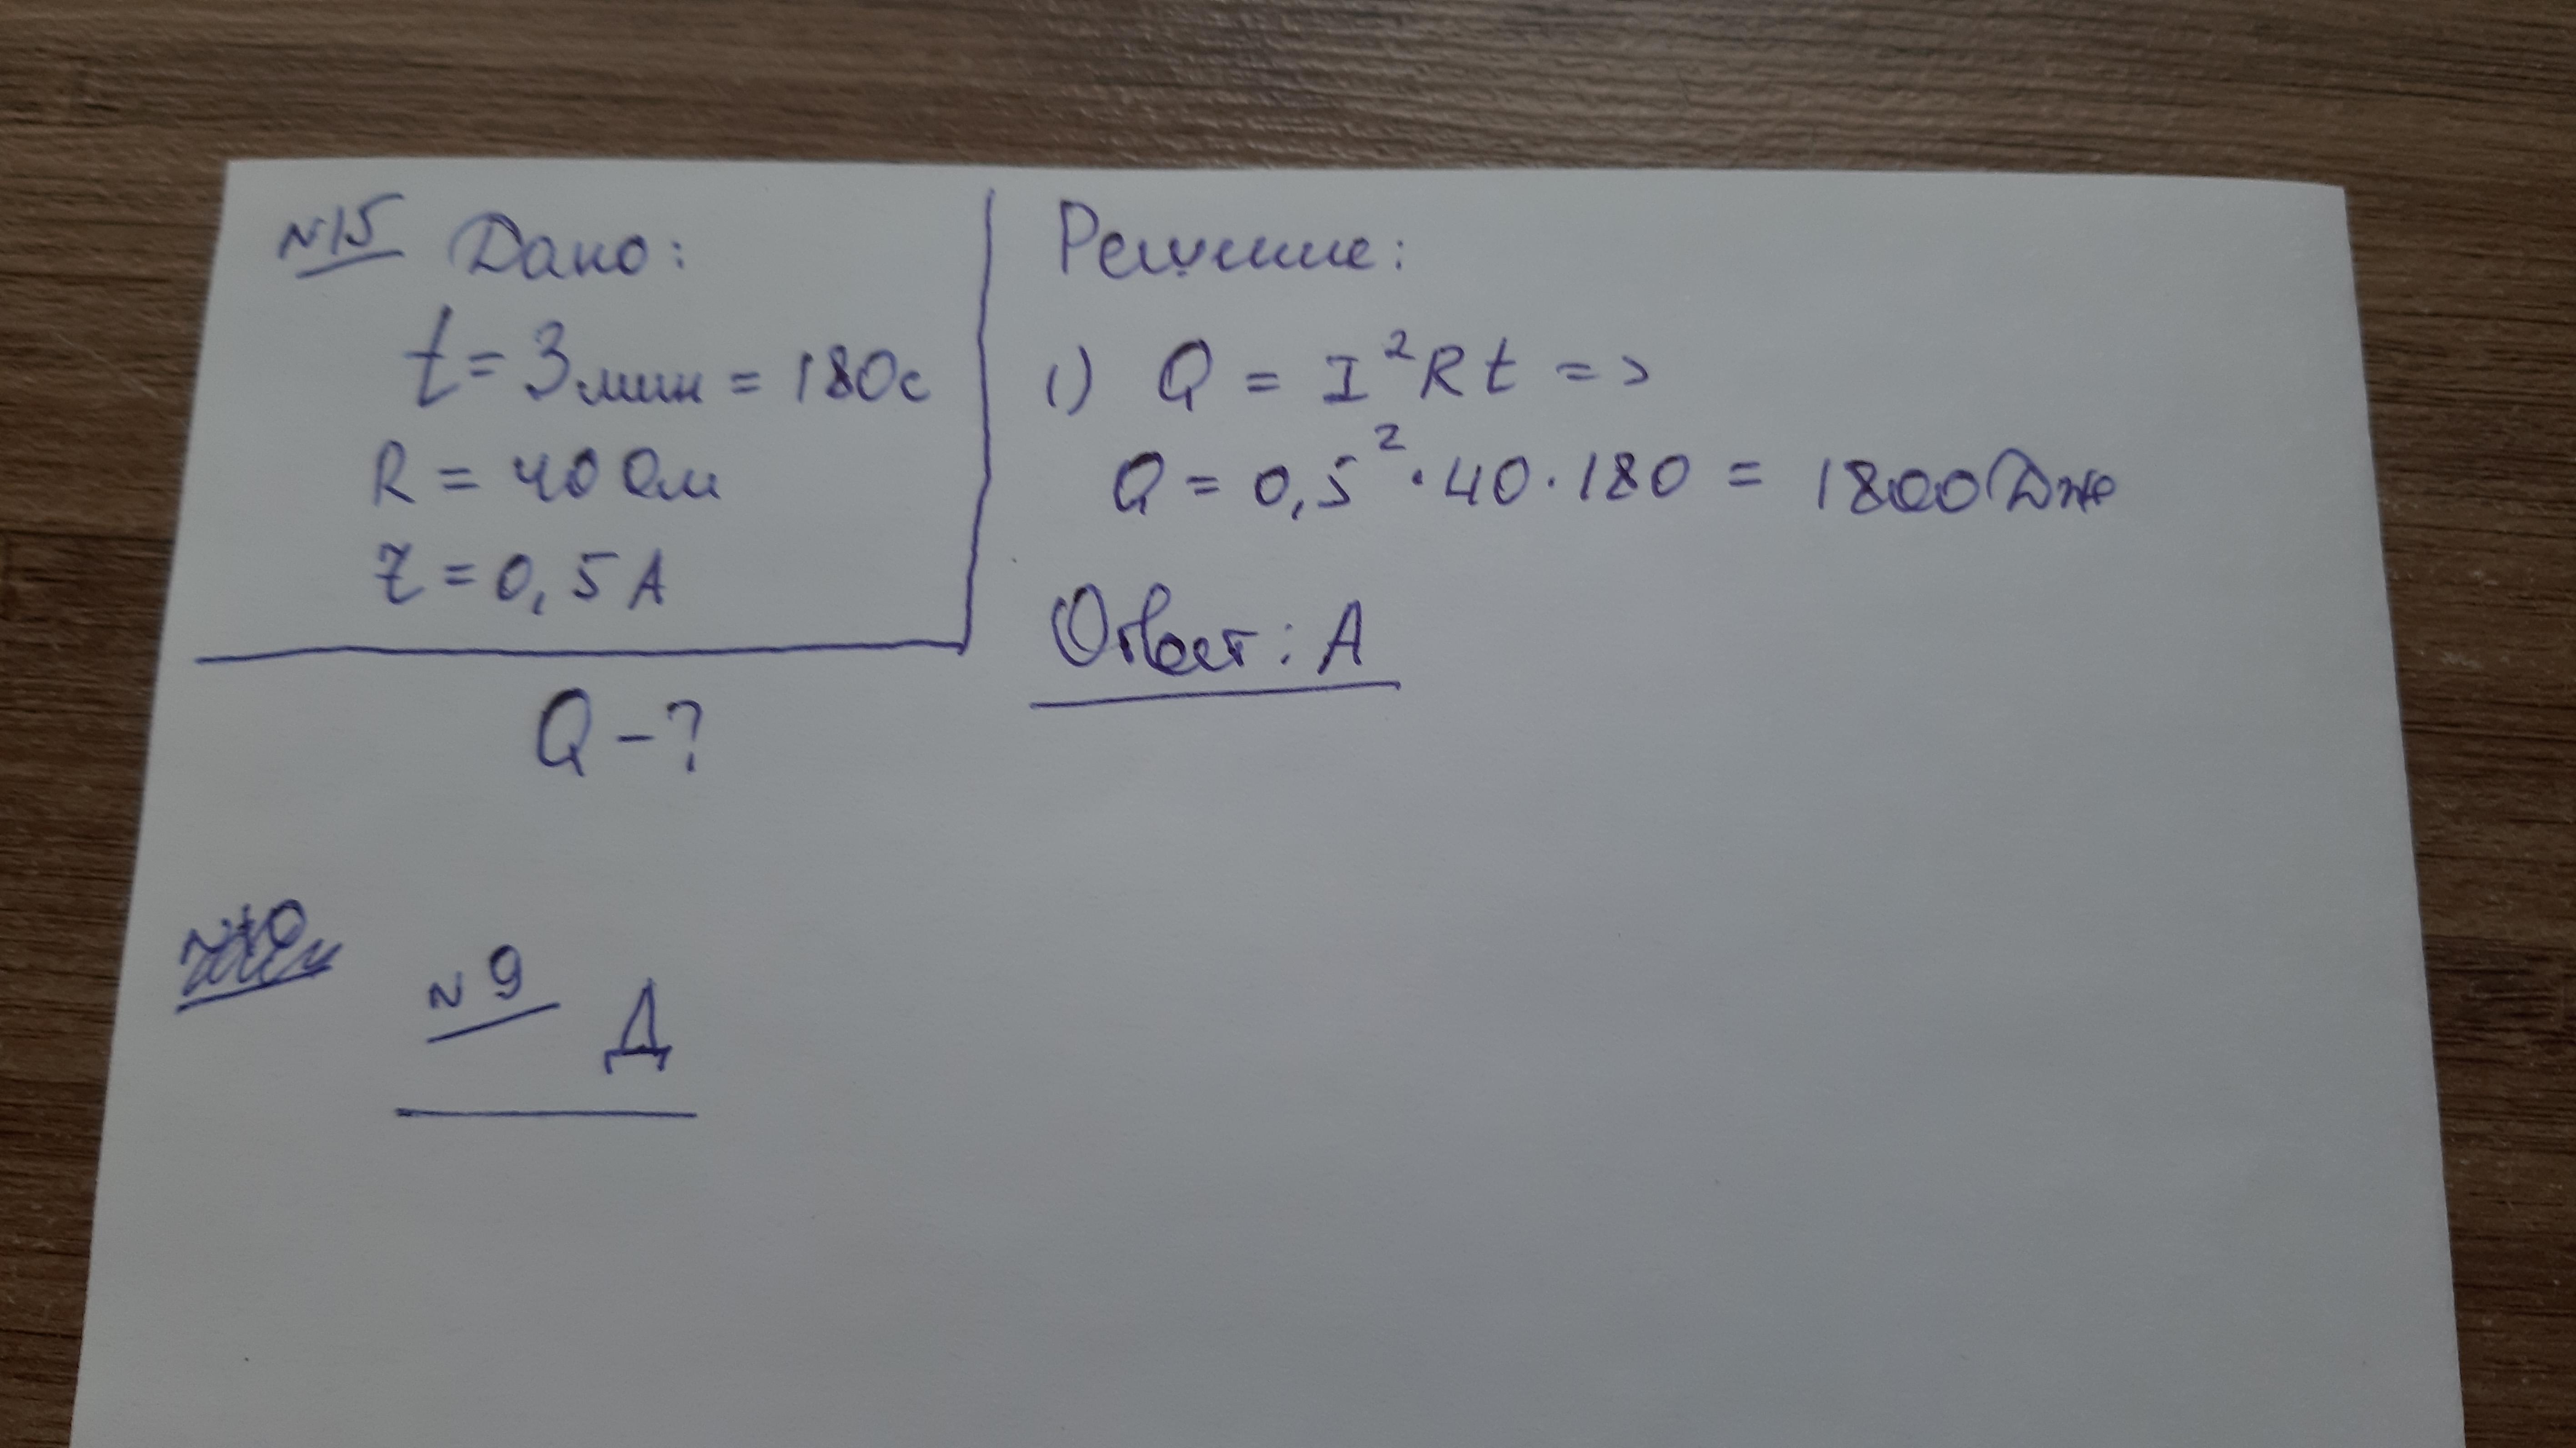 №15 Дано:
t = 3 мин = 180 с
R = 40 Ом
I = 0,5 А
Q - ?
Решение:
1) Q = I²Rt =>
Q = 0,5² · 40 · 180 = 1800 Дж
Ответ: А
№9 Д